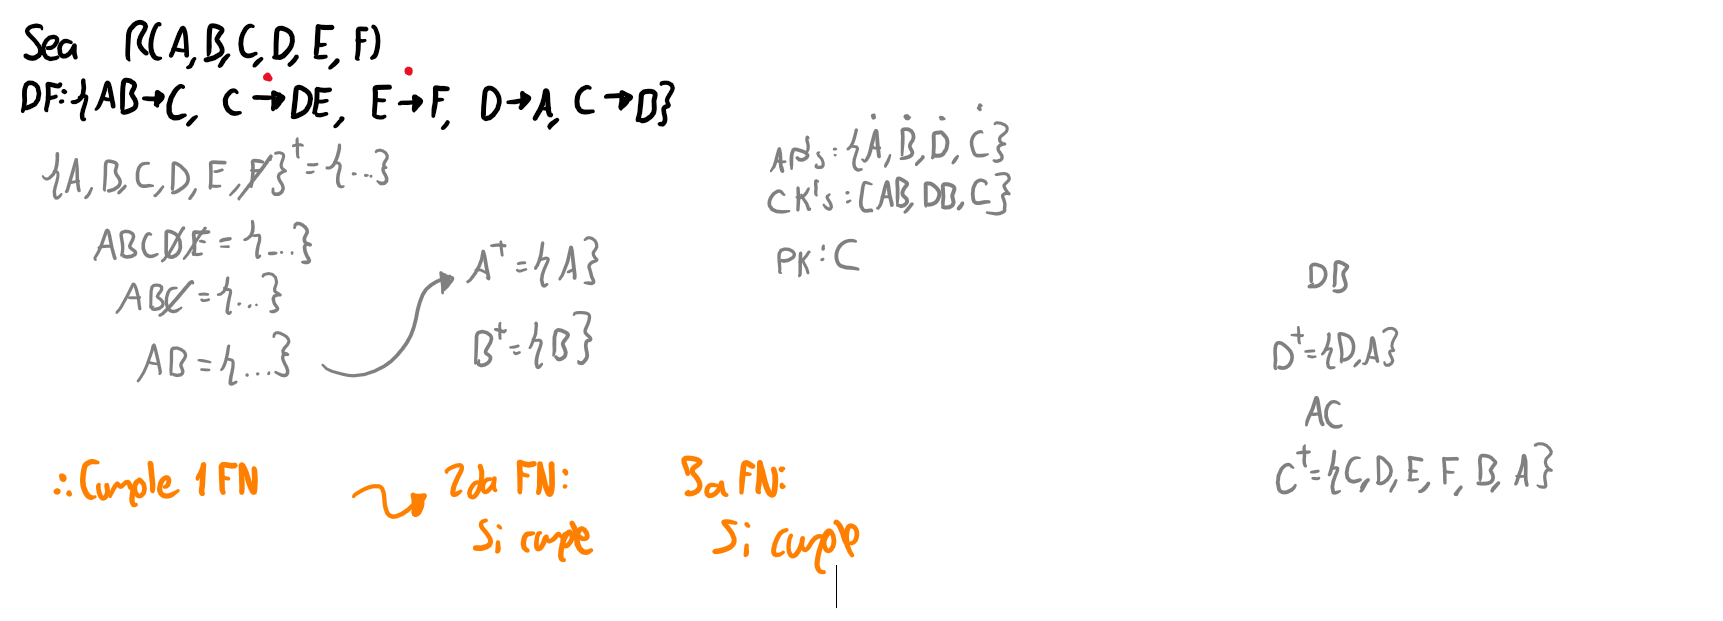 Sea R(A,B,C,D,E,F)
DF:{AB→C, C→DE, E→F, D→A, C→B}
{A,B,C,D,E,F}⁺={...}
ABCDE={...}
ABC={...}
AB={...}
A⁺={A}
B⁺={B}
AP's:{A,B,D,C}
CK's:{AB,DB,C}
PK:C
DB
D⁺={D,A}
AC
C⁺={C,D,E,F,B,A}
∴Cumple 1FN
2da FN:
Si cumple
3a FN:
Si cumple